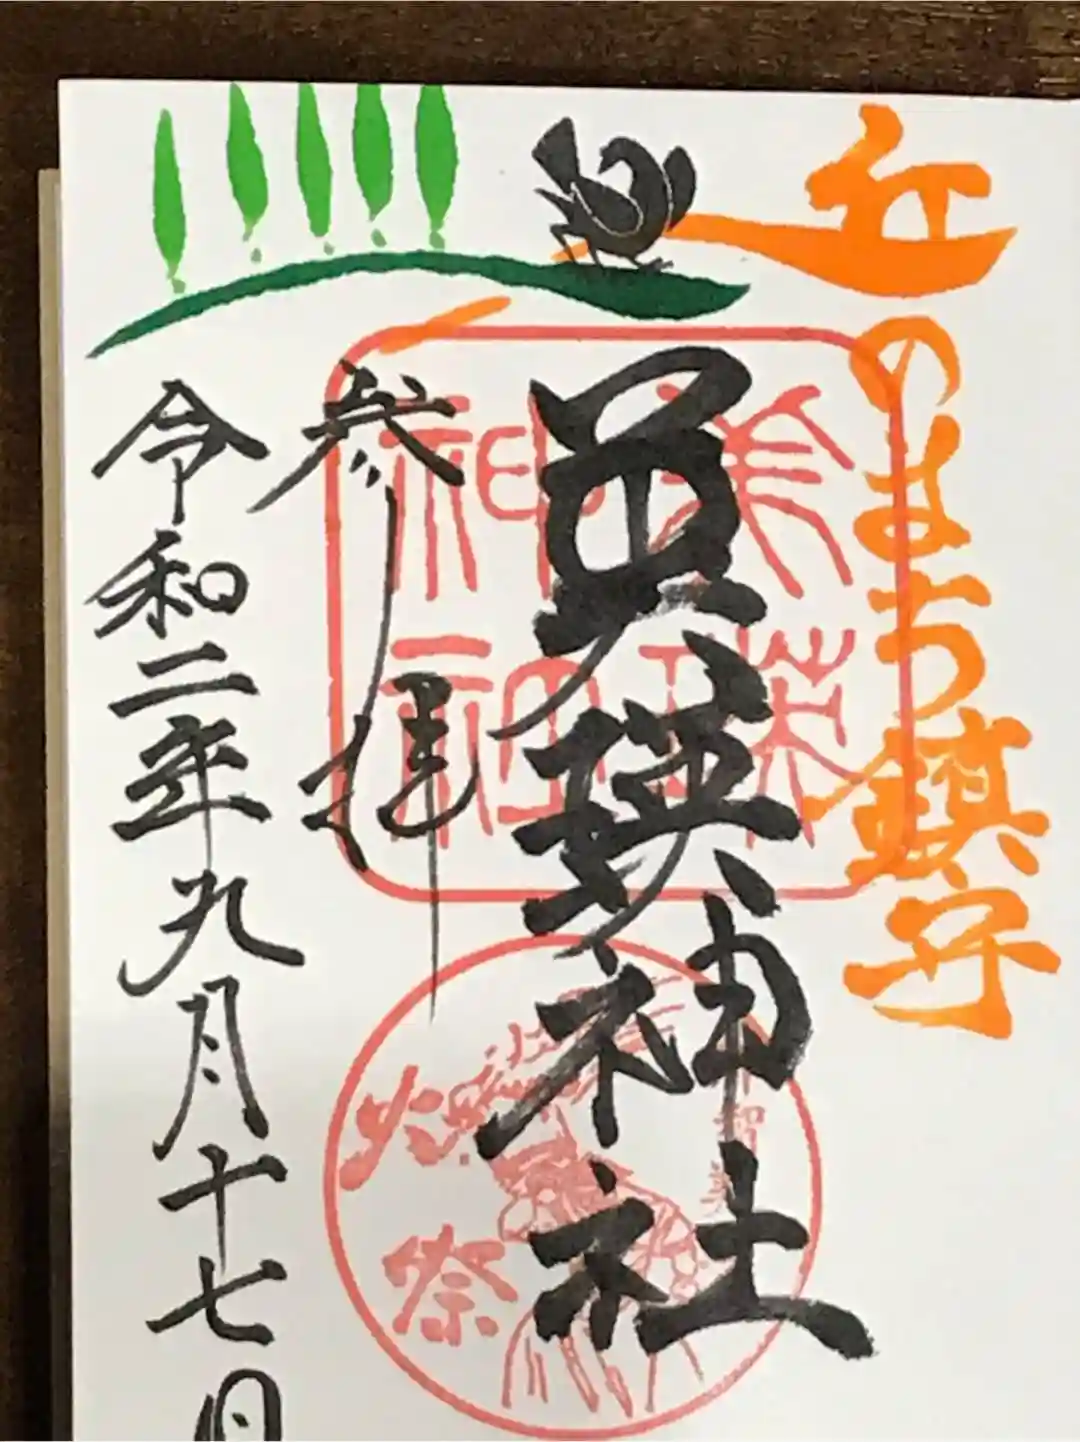 丘のまち鎮守
美瑛神社
参拝
令和二年九月十七日
美瑛
神社
火祭